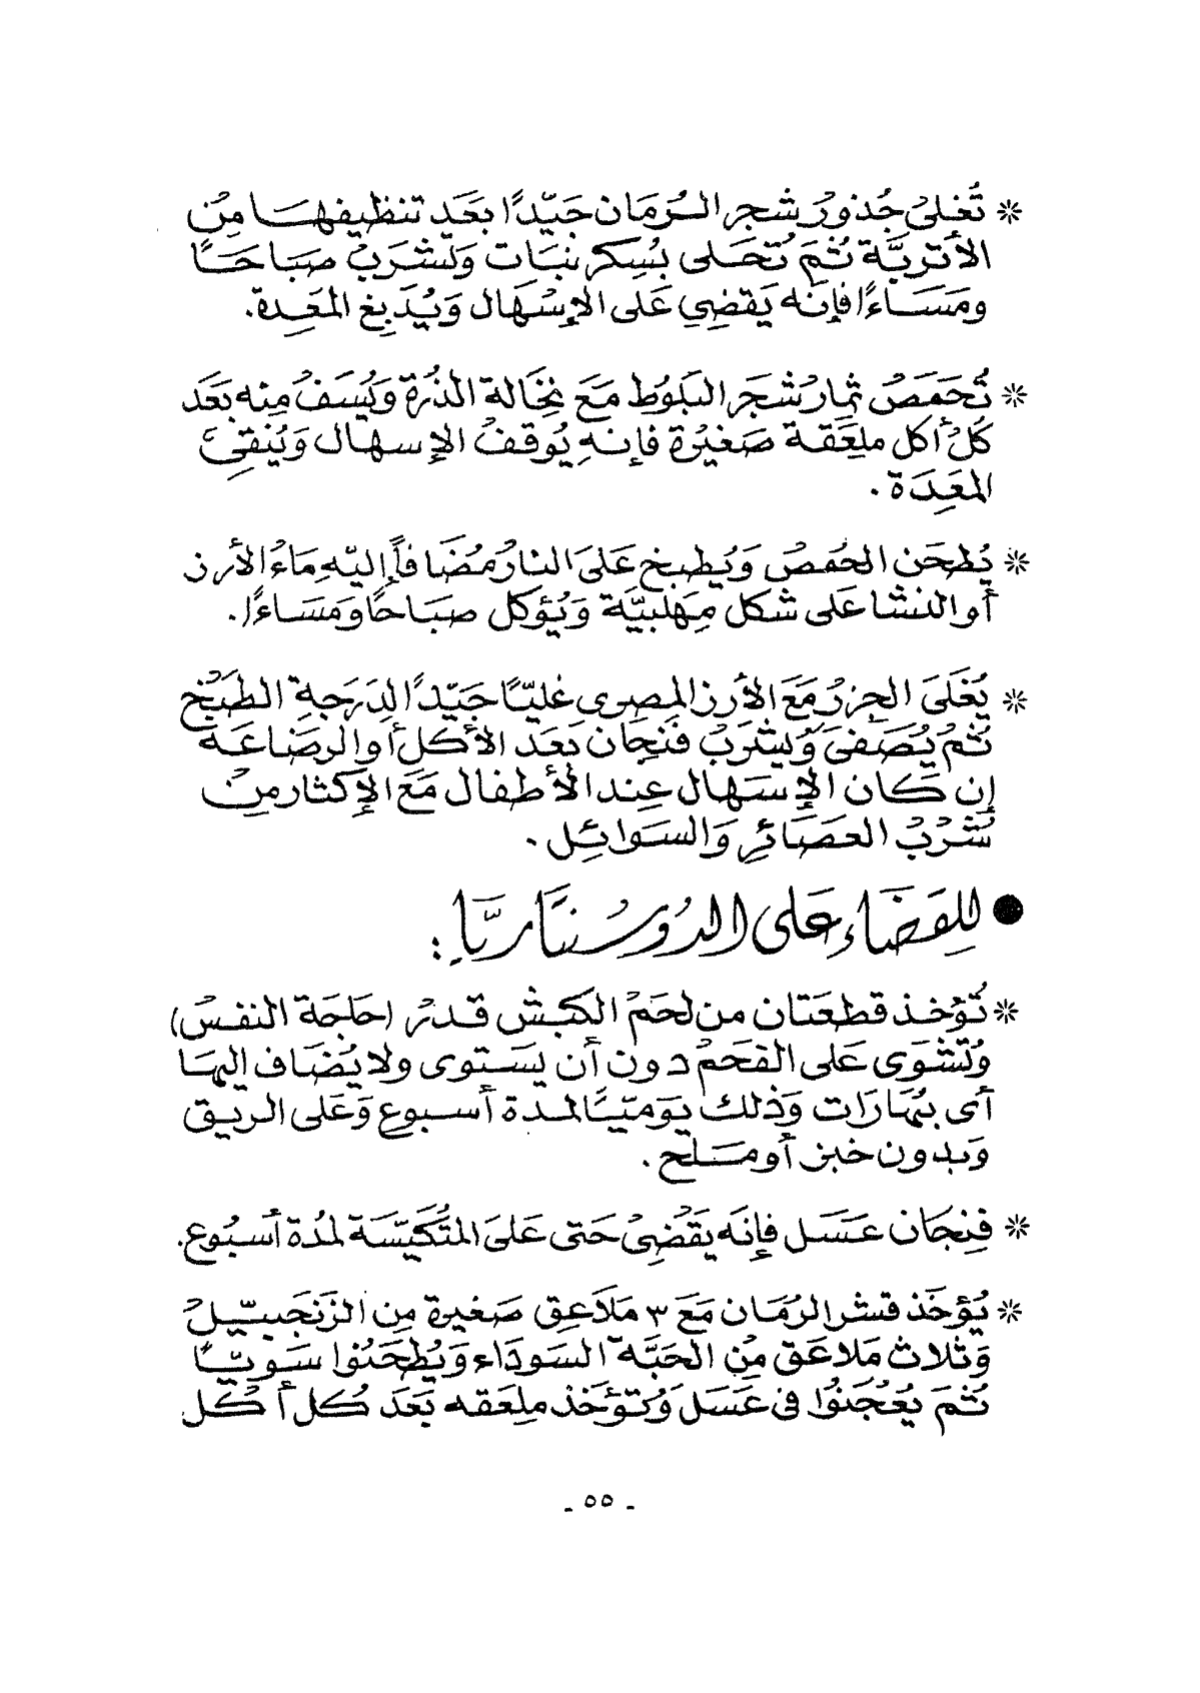 * تُغلى جُذور شجر الرُمَان جَيّدًا بعَد تنظيفهَا مِن
الأتربَّة ثُمَ تُحَلى بسُكر نبَات وَتشرَبُ صبَاحًا
ومَسَاءًا فإنَه يَقضِي عَلى الإسْهَال وَيُدَبِغ المَعَدِة.
* تُحَمَصُ ثمِار شجَر البَلوُط مَعَ نخِالة الذُرة وَيُسَفُ مِنه بعَد
كلُ أكل ملِعَقة صَغيُرة فإنهِ يُوقفُ الإسهال وَيُنقىِ
المعَدِة.
* يُطحَن الحُمصُ وَيُطبخ عَلىَ النارُ مُضَافاً إليّهِ مَاءُ الأرز
أو النشا عَلى شكل مِهَلبيَّة وَيُؤكل صبَاحًا وَمَسَاءًا.
* يُغَلىَ الجِزرُ مَعَ الأرز المِصرى غليّاً جَيّدًا لِدَرَجَةِ الطبَخُ
ثُمُ يُصَفىَ وَيشرَبُ فنَجِان بَعَد الأكل أو الرضَاعَة
إن كان الإسهال عِند الأطفال مَعَ الإكثار مِنُ
شُرْبُ العصَائرِ وَالسَوائِل.
● للِقَضَاء عَلى الدُوسُنتَارِيَّا:
* تُؤخذ قطعَتان من لحَمُ الكبش قدرُ (حَاجَة النفسُ)
وُتشوَى عَلى الفحَمُ دون أن يسَتوى ولا يُضَاف اليهَا
أى بُهَارَات وَذلك يَوميّاً لمدة أسبوع وَعَلى الريق
وَبدون خبز أو مَلح.
* فِنجَان عَسَل فإنَه يَقضِىُ حَتى عَلىَ المتُكَيّسَة لمدُة أسبُوع.
* يُؤخَذ قشر الرُمَان مَعَ ٣ مَلاَعِق صَغيرة مِن الزَنجَبيّلُ
وَثلاث مَلاعَق مِن الحَبَّة السَودَاء وَيُطحَنُوا سَويّاً
ثُمَ يعُجَنُوا فى عَسَل وَتُؤخَذ ملِعَقه بَعَدَ كُل أكل
- ٥٥ -